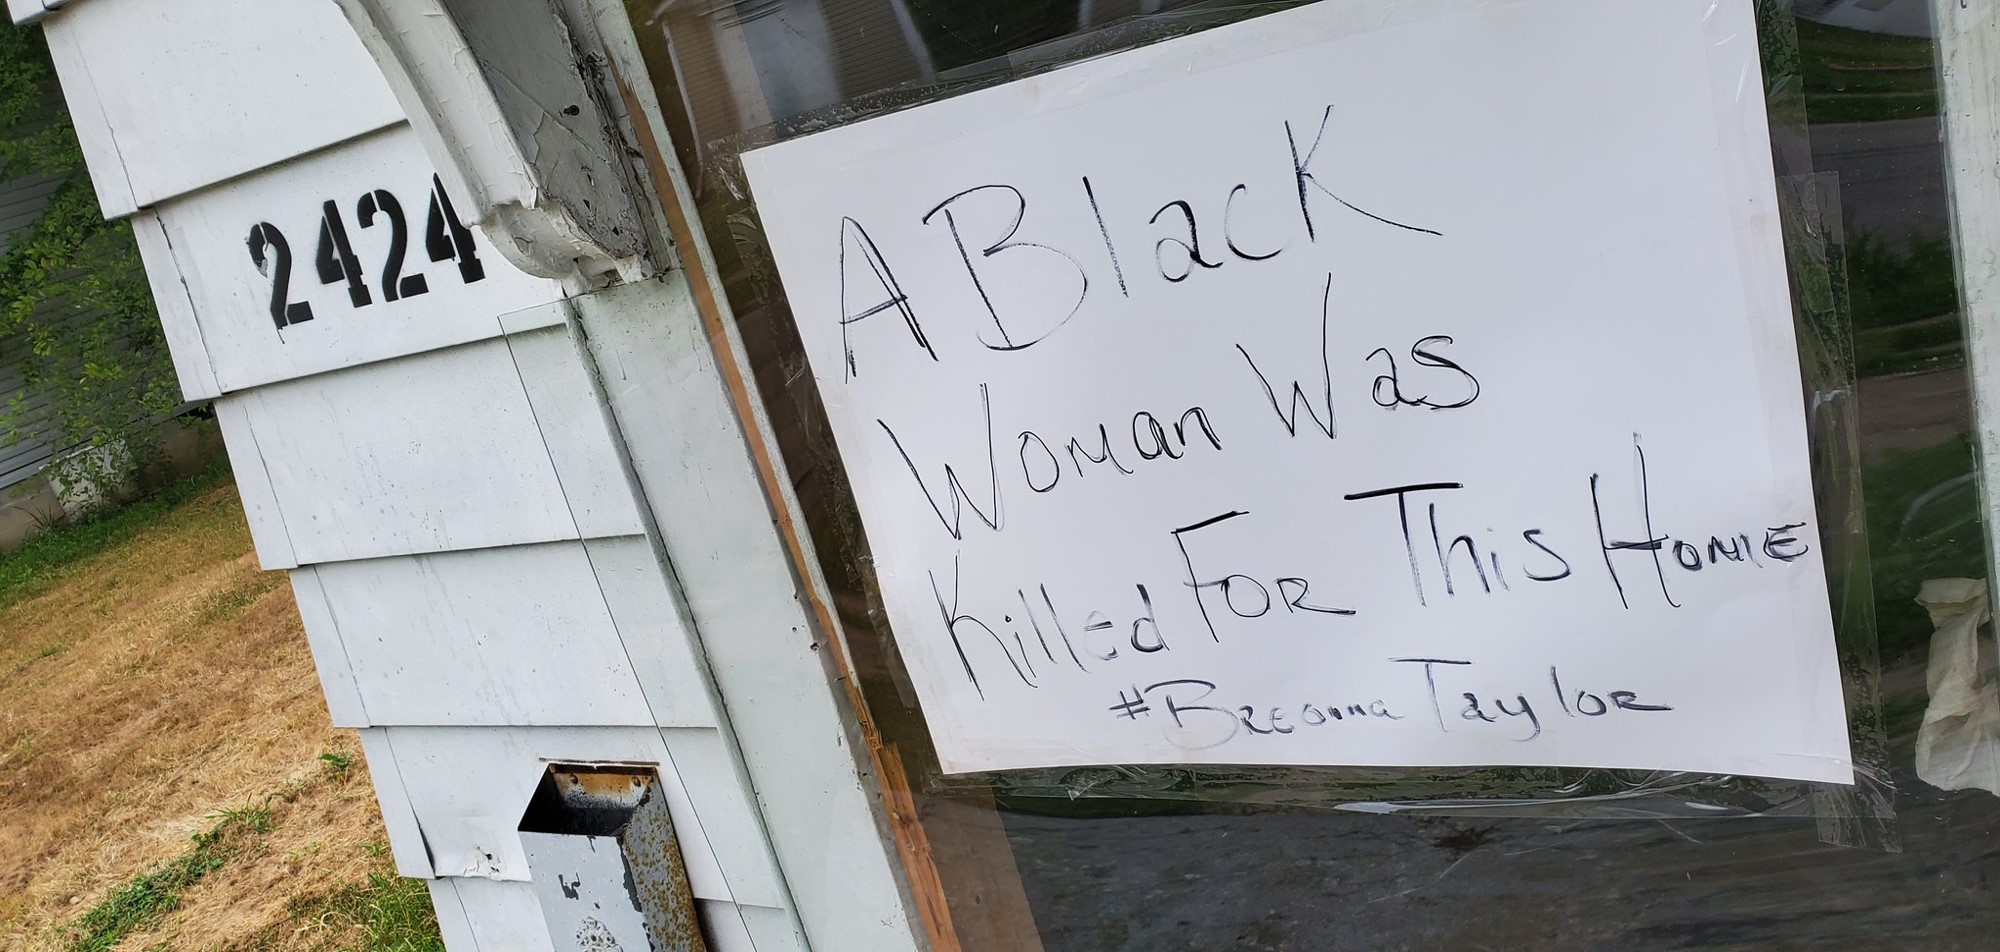 2424
A Black
Woman Was
Killed For This Home
#Breonna Taylor